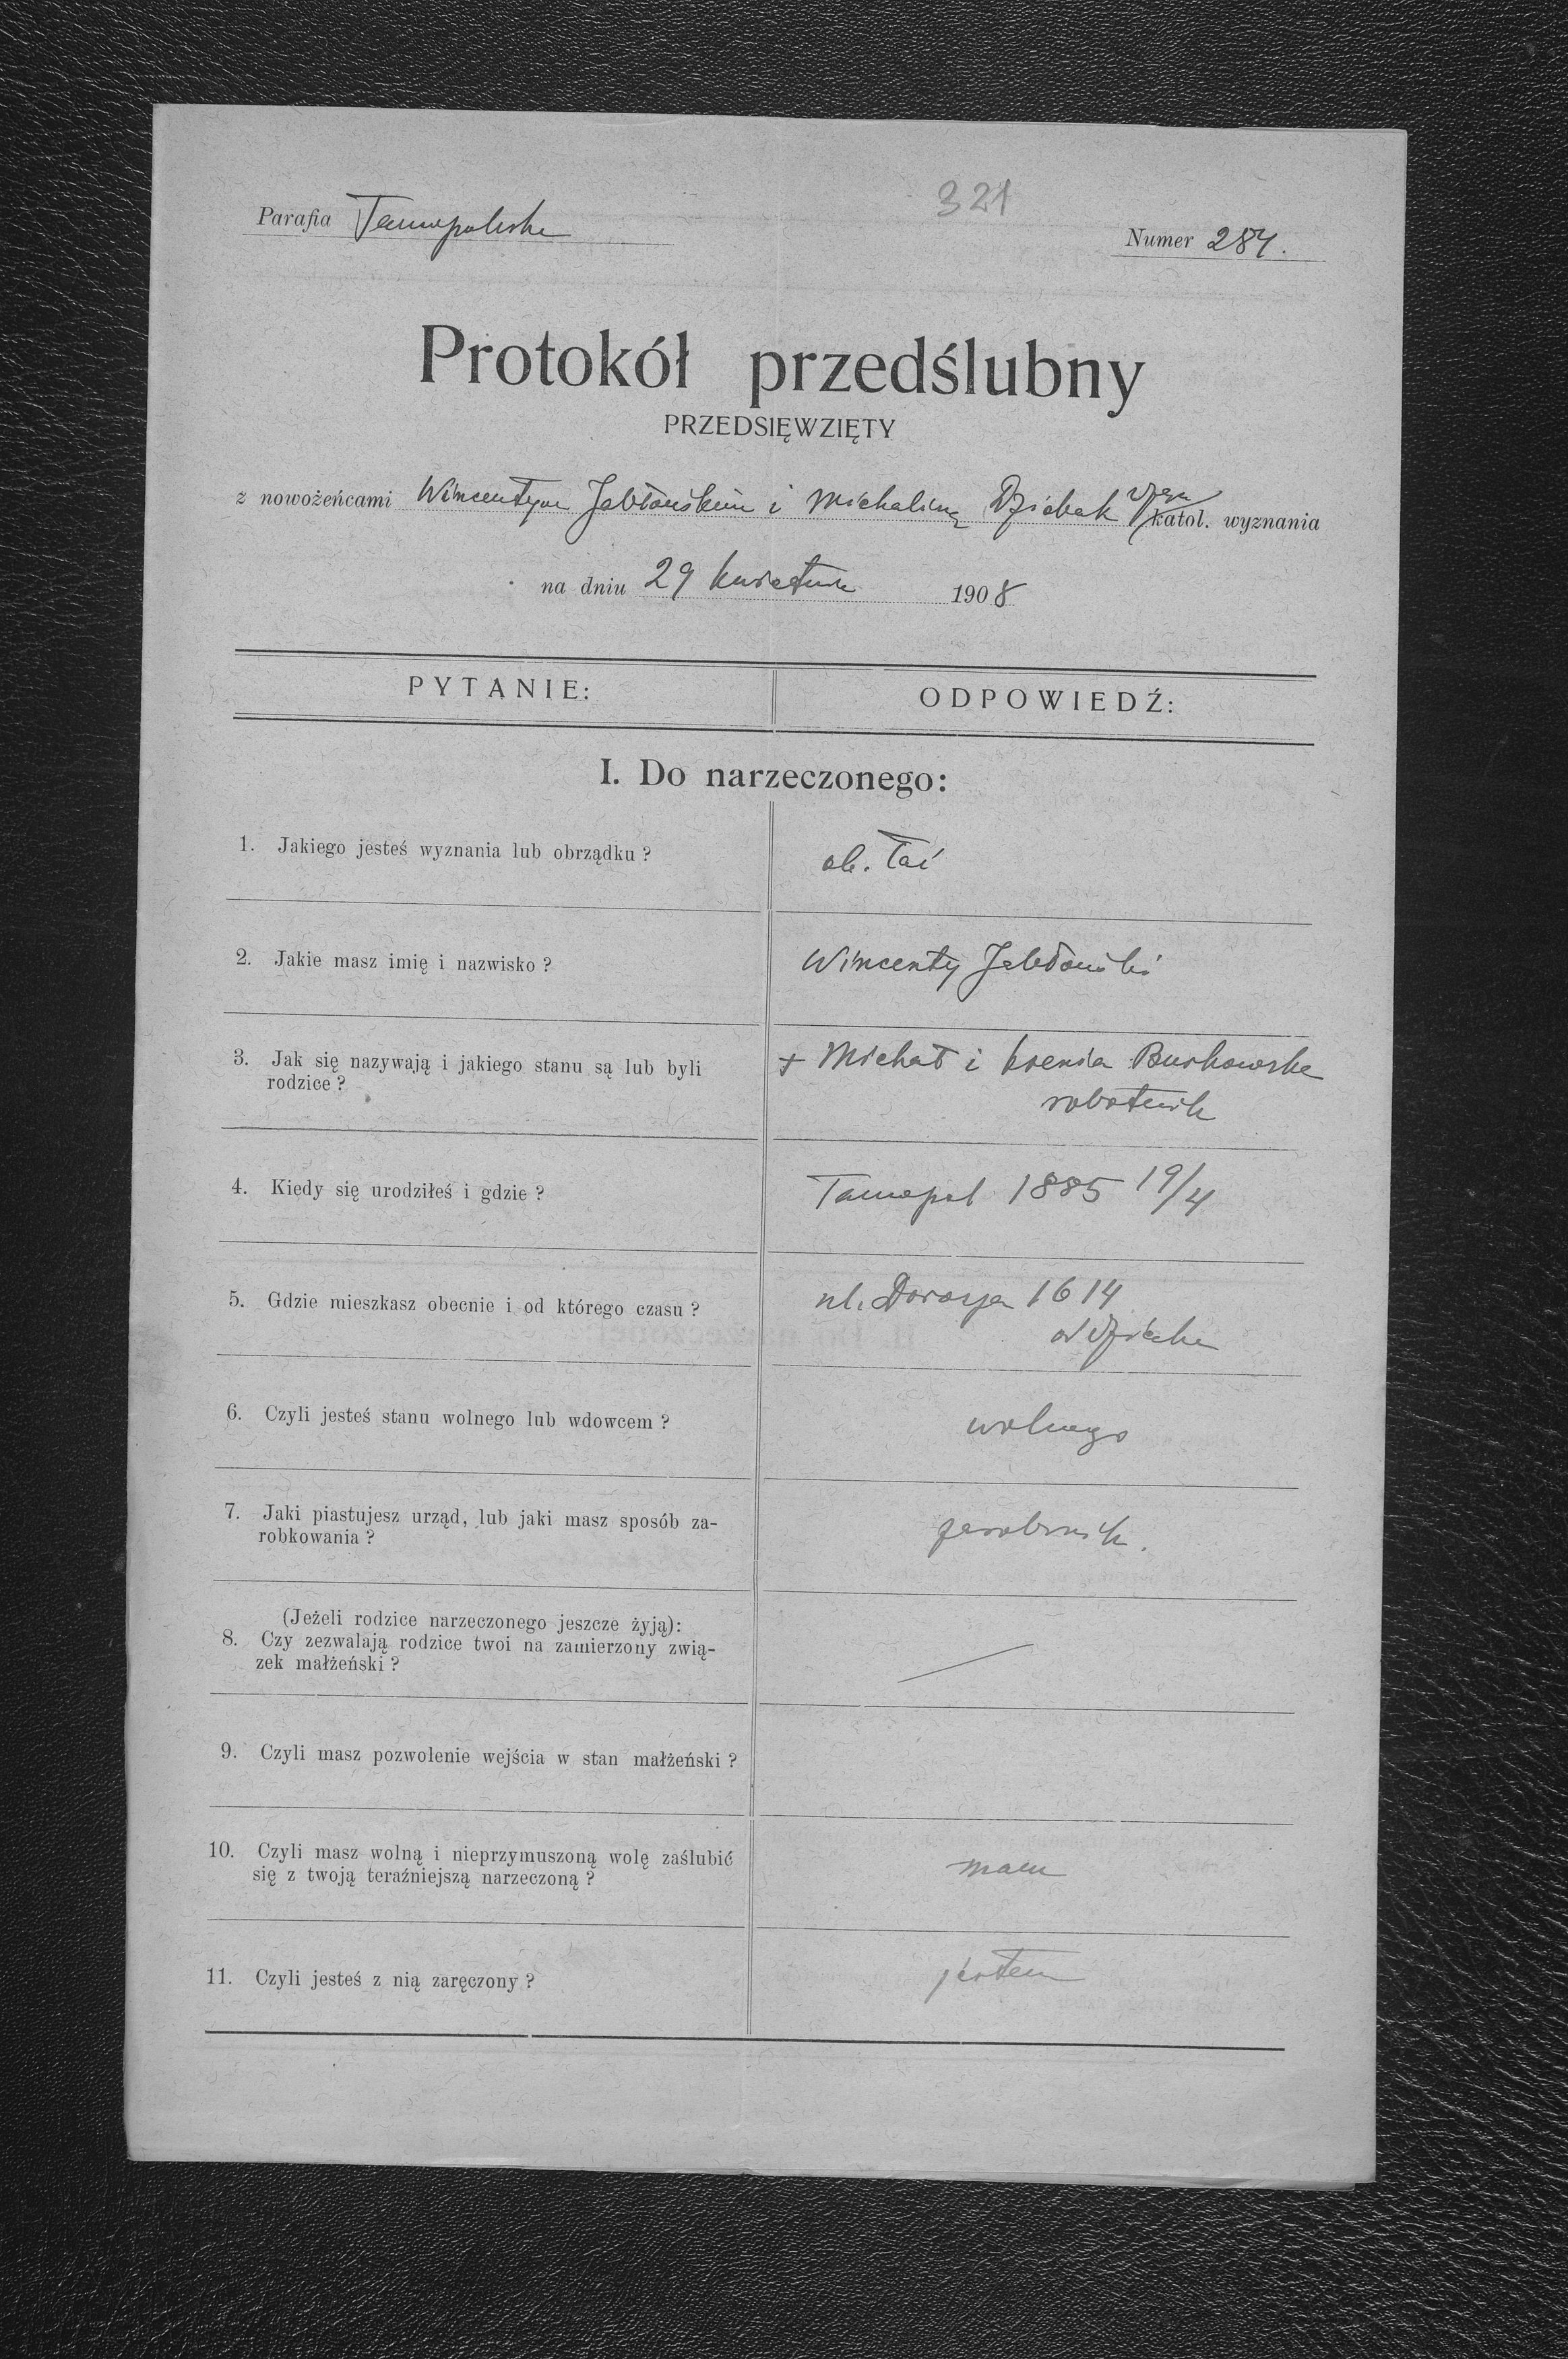 321
Parafia Tarnopolska
Numer 284.
Protokół przedślubny
PRZEDSIĘWZIĘTY
z nowożeńcami Wincentym Jabłońskim i Michaliną Dziobak katol. wyznania
na dniu 29 kwietnia 1908
PYTANIE:
ODPOWIEDŹ:
I. Do narzeczonego:
1. Jakiego jesteś wyznania lub obrządku?
ob. łać
2. Jakie masz imię i nazwisko?
Wincenty Jabłoński
3. Jak się nazywają i jakiego stanu są lub byli
rodzice?
+ Michał i Ksenia Burkowska
robotnik
4. Kiedy się urodziłeś i gdzie?
Tarnopol 1885 19/4
5. Gdzie mieszkasz obecnie i od którego czasu?
ul. 1614
6. Czyli jesteś stanu wolnego lub wdowcem?
wolnego
7. Jaki piastujesz urząd, lub jaki masz sposób za-
robkowania?
zarobnik.
(Jeżeli rodzice narzeczonego jeszcze żyją):
8. Czy zezwalają rodzice twoi na zamierzony zwią-
zek małżeński?
9. Czyli masz pozwolenie wejścia w stan małżeński?
10. Czyli masz wolną i nieprzymuszoną wolę zaślubić
się z twoją teraźniejszą narzeczoną?
mam
11. Czyli jesteś z nią zaręczony?
jestem